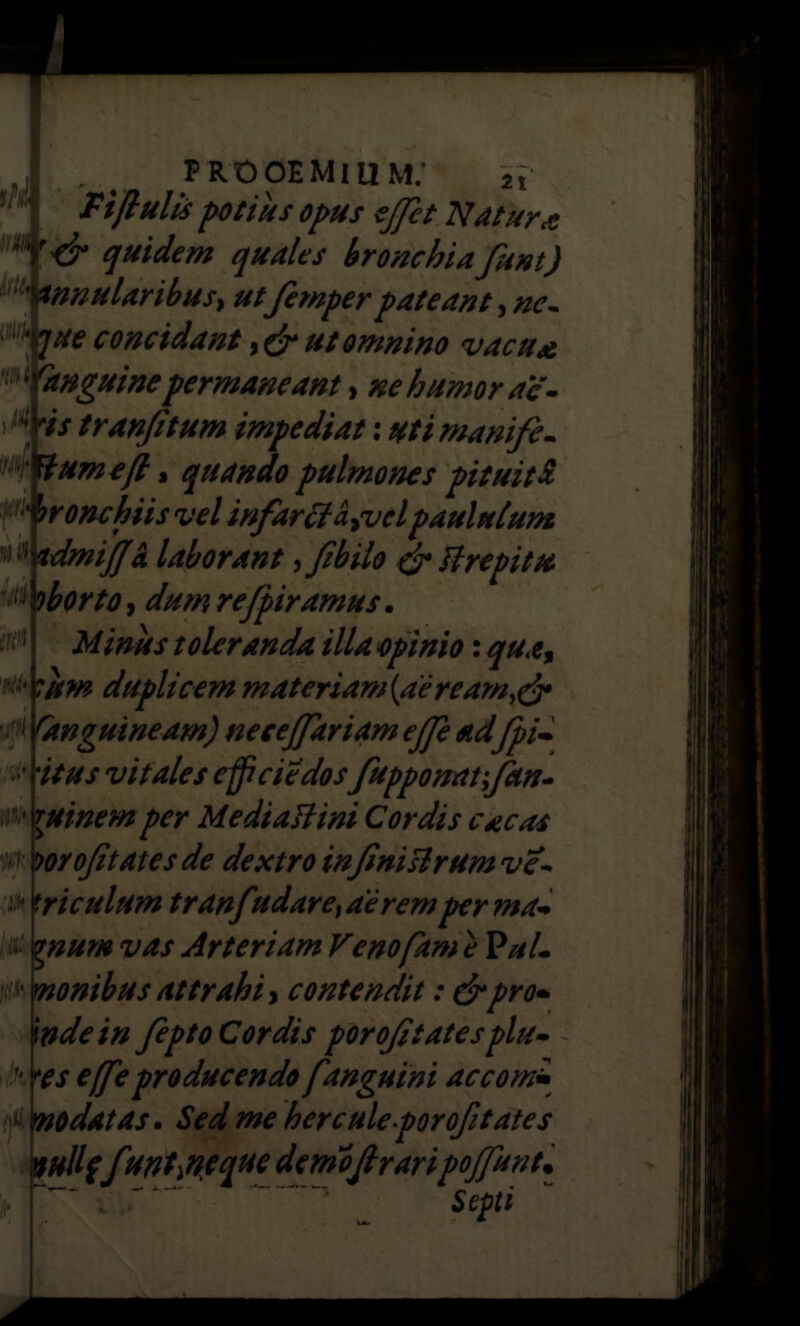 PROOEMIUM. 21
Fiſtulis potiùs opus eſſet Naturæ
& quidem quales bronchia ſunt)
annularibus, ut ſemper pateant, ne-
que concidant, & ut omnino vacuæ
ſanguine permaneant, ne humor aë-
ris tranſitum impediat: uti manife-
ſtum eſt, quando pulmones pituitâ
bronchiis vel infarctâ, vel paululum
admiſſâ laborant, ſibilo & ſtrepitu
oborto, dum reſpiramus.
Minùs toleranda illa opinio: quæ,
cùm duplicem materiam (aëream, &
ſanguineam) neceſſariam eſſe ad ſpi-
ritus vitales efficiẽdos ſupponat; ſan-
guinem per Mediaſtini Cordis cæcas
poroſitates de dextro in ſiniſtrum vẽ-
triculum tranſudare, aërem per ma-
gnum vas Arteriam Venoſam è Pul-
monibus attrahi, contendit: & pro-
inde in ſepto Cordis poroſitates plu-
res eſſe producendo ſanguini accom-
modatas. Sed me hercule poroſitates
nullę ſunt, neque demõſtrari poſſunt.
Septi